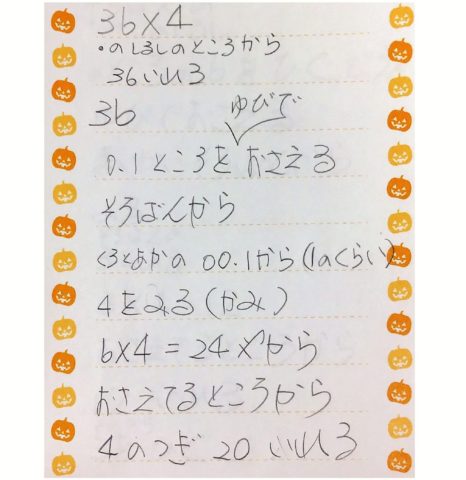 36×4
・のしるしのところから
36いれる
36
ゆびで
0.1ところを おさえる
そろばんから
くろとあかの 00.1から(1のくらい)
4をみる(かみ)
6×4=24 だから
おさえてるところから
4のつぎ 20 いれる